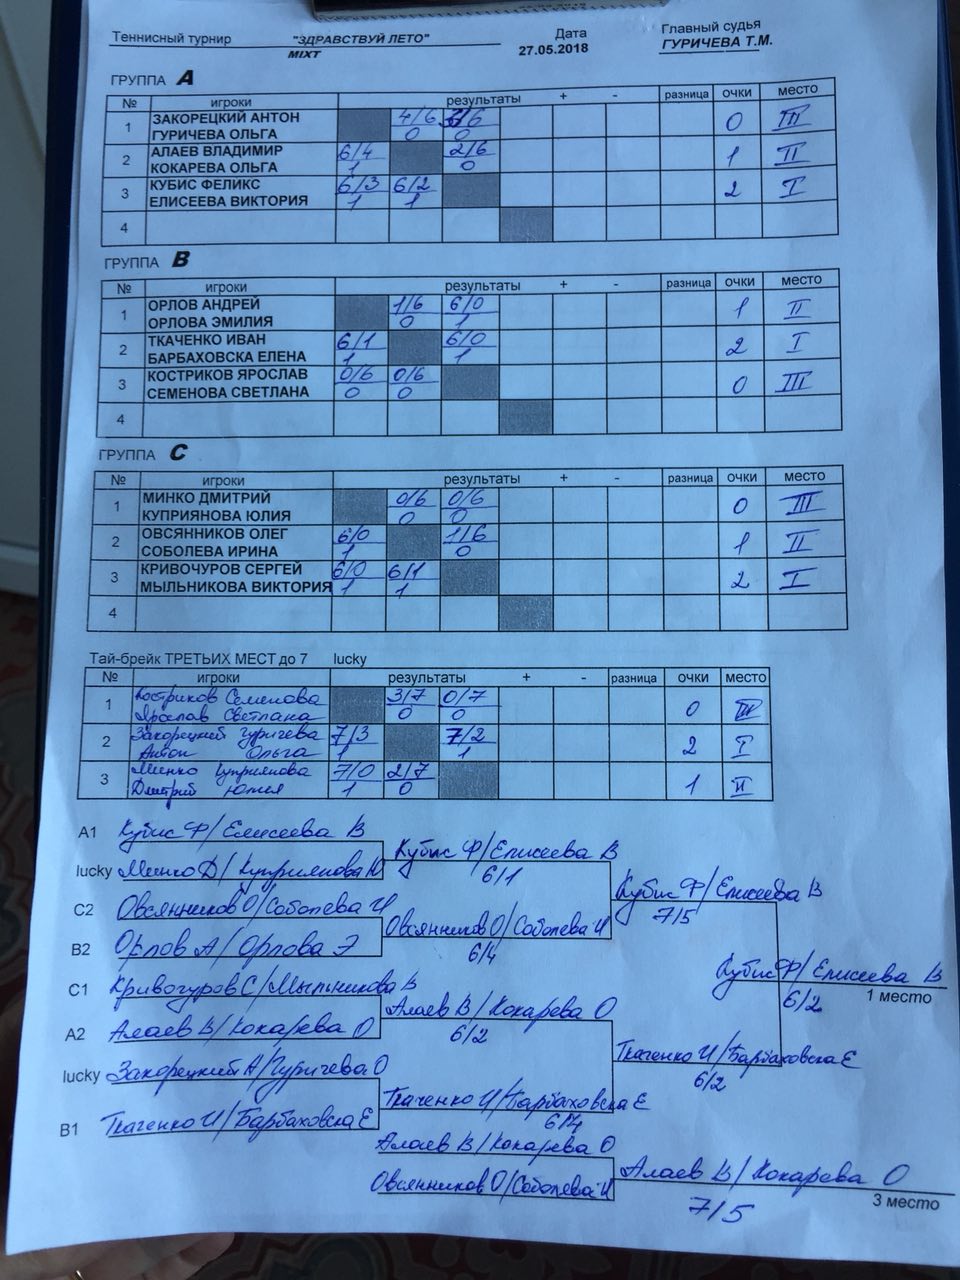 Теннисный турнир "ЗДРАВСТВУЙ ЛЕТО" Дата Главный судья
MIXT 27.05.2018 ГУРИЧЕВА Т.М.
ГРУППА A
№ игроки результаты + - разница очки место
1 ЗАКОРЕЦКИЙ АНТОН 4/6 3/6 0 III
ГУРИЧЕВА ОЛЬГА 0 0
2 АЛАЕВ ВЛАДИМИР 6/4 2/6 1 II
КОКАРЕВА ОЛЬГА 1 0
3 КУБИС ФЕЛИКС 6/3 6/2 2 I
ЕЛИСЕЕВА ВИКТОРИЯ 1 1
4
ГРУППА B
№ игроки результаты + - разница очки место
1 ОРЛОВ АНДРЕЙ 1/6 6/0 1 II
ОРЛОВА ЭМИЛИЯ 0 1
2 ТКАЧЕНКО ИВАН 6/1 6/0 2 I
БАРБАХОВСКА ЕЛЕНА 1 1
3 КОСТРИКОВ ЯРОСЛАВ 0/6 0/6 0 III
СЕМЕНОВА СВЕТЛАНА 0 0
4
ГРУППА C
№ игроки результаты + - разница очки место
1 МИНКО ДМИТРИЙ 0/6 0/6 0 III
КУПРИЯНОВА ЮЛИЯ 0 0
2 ОВСЯННИКОВ ОЛЕГ 6/0 1/6 1 II
СОБОЛЕВА ИРИНА 1 0
3 КРИВОЧУРОВ СЕРГЕЙ 6/0 6/1 2 I
МЫЛЬНИКОВА ВИКТОРИЯ 1 1
4
Тай-брейк ТРЕТЬИХ МЕСТ до 7 lucky
№ игроки результаты + - разница очки место
1 Костриков Семенова 3/7 0/7 0 III
Ярослав Светлана 0 0
2 Закорецкий Гуричева 7/3 7/2 2 I
Антон Ольга 1 1
3 Минко Куприянова 7/0 2/7 1 II
Дмитрий Юлия 1 0
A1 Кубис Ф/Елисеева В
Кубис Ф/Елисеева В
lucky Минко Д/Куприянова Ю
6/1
Кубис Ф/Елисеева В
C2 Овсянников О/Соболева И
7/5
Овсянников О/Соболева И
B2 Орлов А/Орлова Э
6/4
Кубис Ф/Елисеева В
C1 Кривочуров С/Мыльникова В
6/2 1 место
Алаев В/Кокарева О
A2 Алаев В/Кокарева О
6/2
Ткаченко И/Барбаховска Е
lucky Закорецкий А/Гуричева О
6/2
Ткаченко И/Барбаховска Е
B1 Ткаченко И/Барбаховска Е
6/4
Алаев В/Кокарева О
Алаев В/Кокарева О
Овсянников О/Соболева И
7/5 3 место